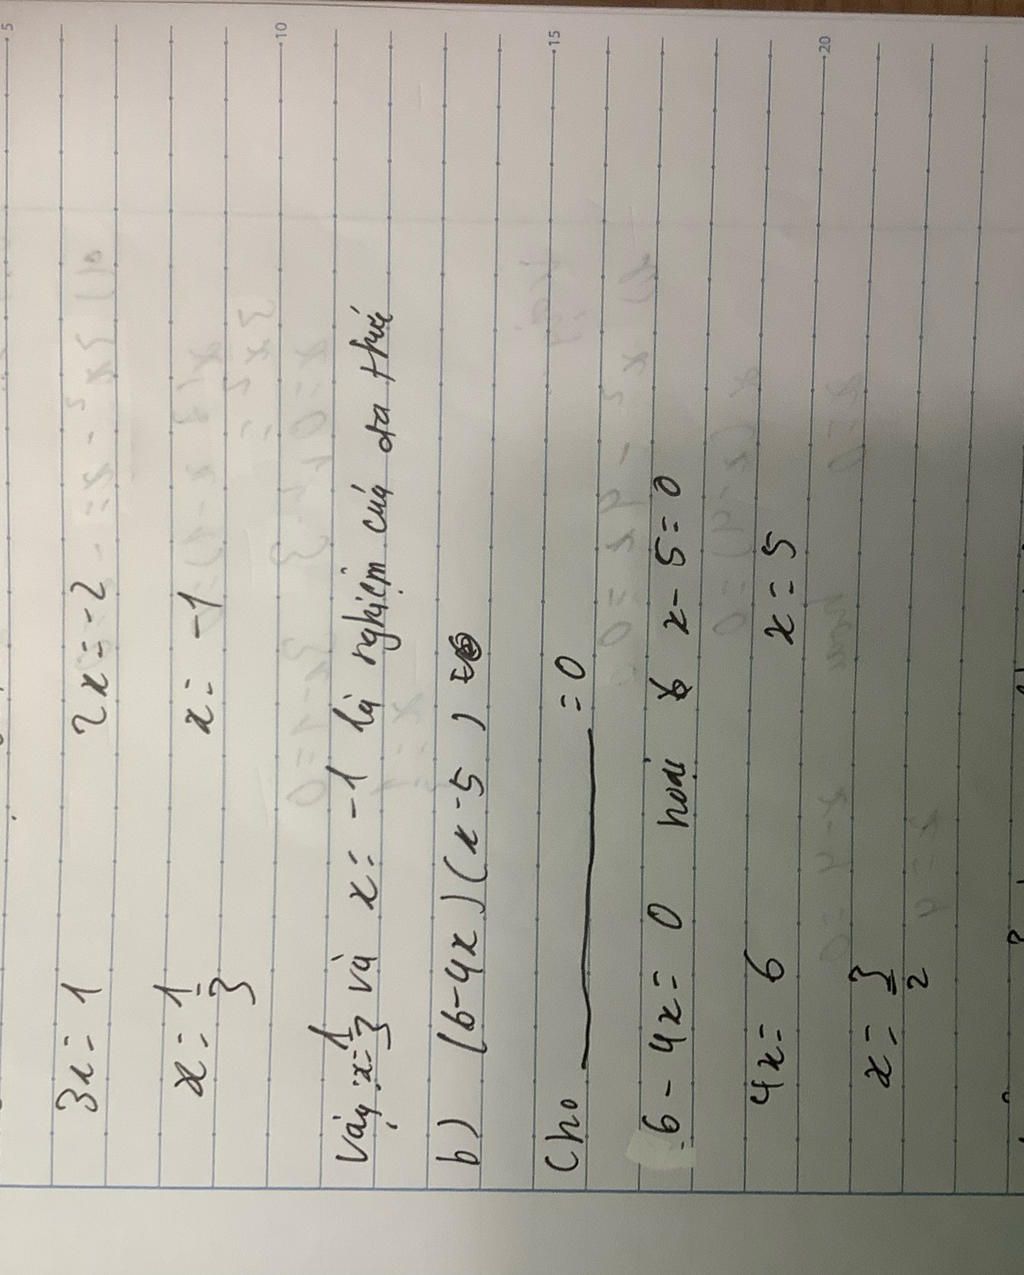 3x = 1 2x = -2
x = 1/3 x = -1
Vậy x = 1/3 và x = -1 là nghiệm của đa thức
b) (6-4x)(x-5)
Cho = 0
6 - 4x = 0 hoặc x - 5 = 0
4x = 6 x = 5
x = 3/2
5 10 15 20